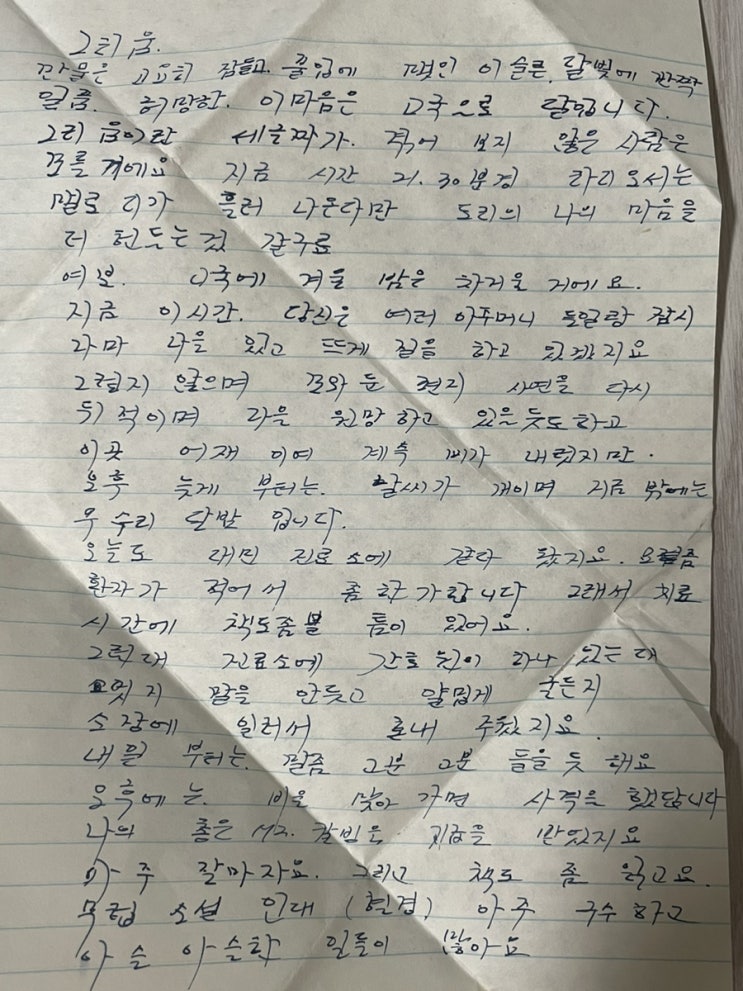 그리움.
만물은 고요히 잠들고. 풀잎에 맺인 이슬은 달빛에 반짝
일쯤. 허망한. 이마음은 고국으로 달립니다.
그리움이란 세글짜가. 격어 보지 않은 사람은
모를거에요 지금 시간 21.30분경 라디오서는
멜로디가 흘러 나온다만 도리의 나의 마음을
더 헌드는것 갇구료
여보. 고국에 겨울 밤은 차거울 거에요.
지금 이시간. 당신은 여러 아주머니 들일랑 잠시
나마 나을 잊고 뜨게질을 하고 있겠지요
그럲지 않으며 모와둔 편지 사연을 다시
뒤적이며 나을 원망하고 있을듯도하고
이곳 어재 이여 계속 비가 내렸지만.
오후 늦게 부터는. 날씨가 개이며 지금 밖에는
우수리 달밤 입니다.
오늘도 대민 진료소에 갇다 왔지요. 요즘
환자가 적어서 좀 한가람니다 그래서 치료
시간에 책도좀볼 틈이 있어요.
그런대 진료소에 간호원이 하나 있는대
멋지 말을 안듯고 얄밉게 굴든지
소장에 일러서 혼내 주웠지요.
내일 부터는. 고분고분 들을듯 해요
오후에는. 비을 맞아가면 사격을 했답니다
나의 총은 M2. 칼빙을 지급을 받았지요
아주 잘마자요. 그리고 책도 좀 읽고요.
무협 소설 인대 (혈겸) 아주 구수하고
아슬아슬한 일들이 많아요